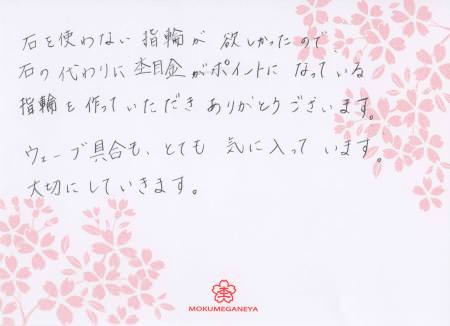 石を使わない指輪が欲しかったので
石の代わりに杢目金がポイントになっている
指輪を作っていただきありがとうございます。
ウェーブ具合も、とても気に入っています。
大切にしていきます。
杢
MOKUMEGANEYA